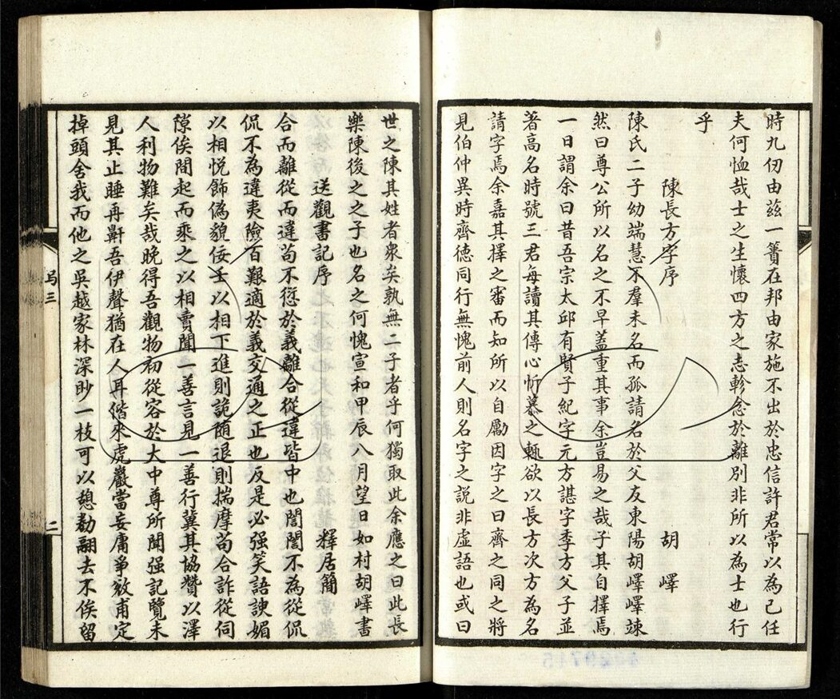 時九仞由茲一簣在邦由家施不出於忠信許君常以為己任
夫何恤哉士之生懷四方之志軫念於離別非所以為士也行
乎
陳長方字序　胡嶧
陳氏二子幼端慧不羣未名而孤請名於父友東陽胡嶧嶧竦
然曰尊公所以名之不早蓋重其事余豈易之哉子其自擇焉
一日謂余曰昔吾宗太邱有賢子紀字元方諶字季方父子並
著高名時號三君每讀其傳心忻慕之輒欲以長方次方為名
請字焉余嘉其擇之審而知所以自勵因字之曰齊之同之將
見伯仲異時齊德同行無愧前人則名字之說非虛語也或曰
世之陳其姓者衆矣孰無二子者乎何獨取此余應之曰此長
樂陳後之之子也名之何愧宣和甲辰八月望日如村胡嶧書
送觀書記序　釋居簡
合而離從而違苟不愆於義離合從違皆中也誾誾不為從侃
侃不為違夷險百艱適於義交通之正也反是必强笑語諛媚
以相悅飾僞貌佞壬以相下進則詭隨退則揣摩苟合詐從伺
隙俟閒起而乘之以相賣聞一善言見一善行冀其協贊以澤
人利物難矣哉晚得吾觀物初從容於大中尊所聞强記覽未
見其止睡再鼾吾伊聲猶在人耳偕來虎巖當妄庸爭效甫定
掉頭舍我而他之吳越家林深眇一枝可以憩勸翮去不俟留
二